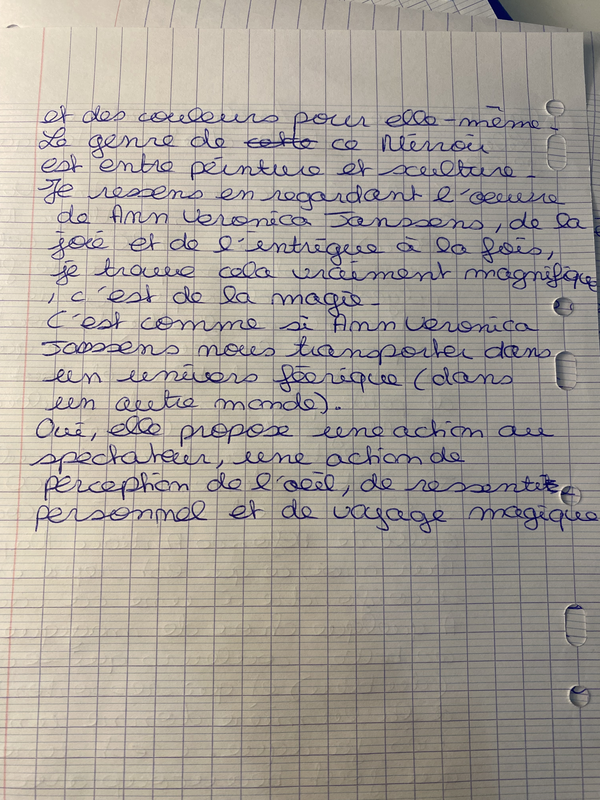 et des couleurs pour elle-même.
Le genre de cette ce Miroir
est entre peinture et sculture.
Je ressens en regardant l'oeuvre
de Ann Veronica Janssens, de la
joie et de l'entrigue à la fois,
je trouve cela vraiment magnifique
, c'est de la magie.
C'est comme si Ann Veronica
Jassens nous transporter dans
un univers féérique (dans
un autre monde).
Oui, elle propose une action au
spectateur, une action de
perception de l'oeil, de ressentis
personnel et de voyage magique